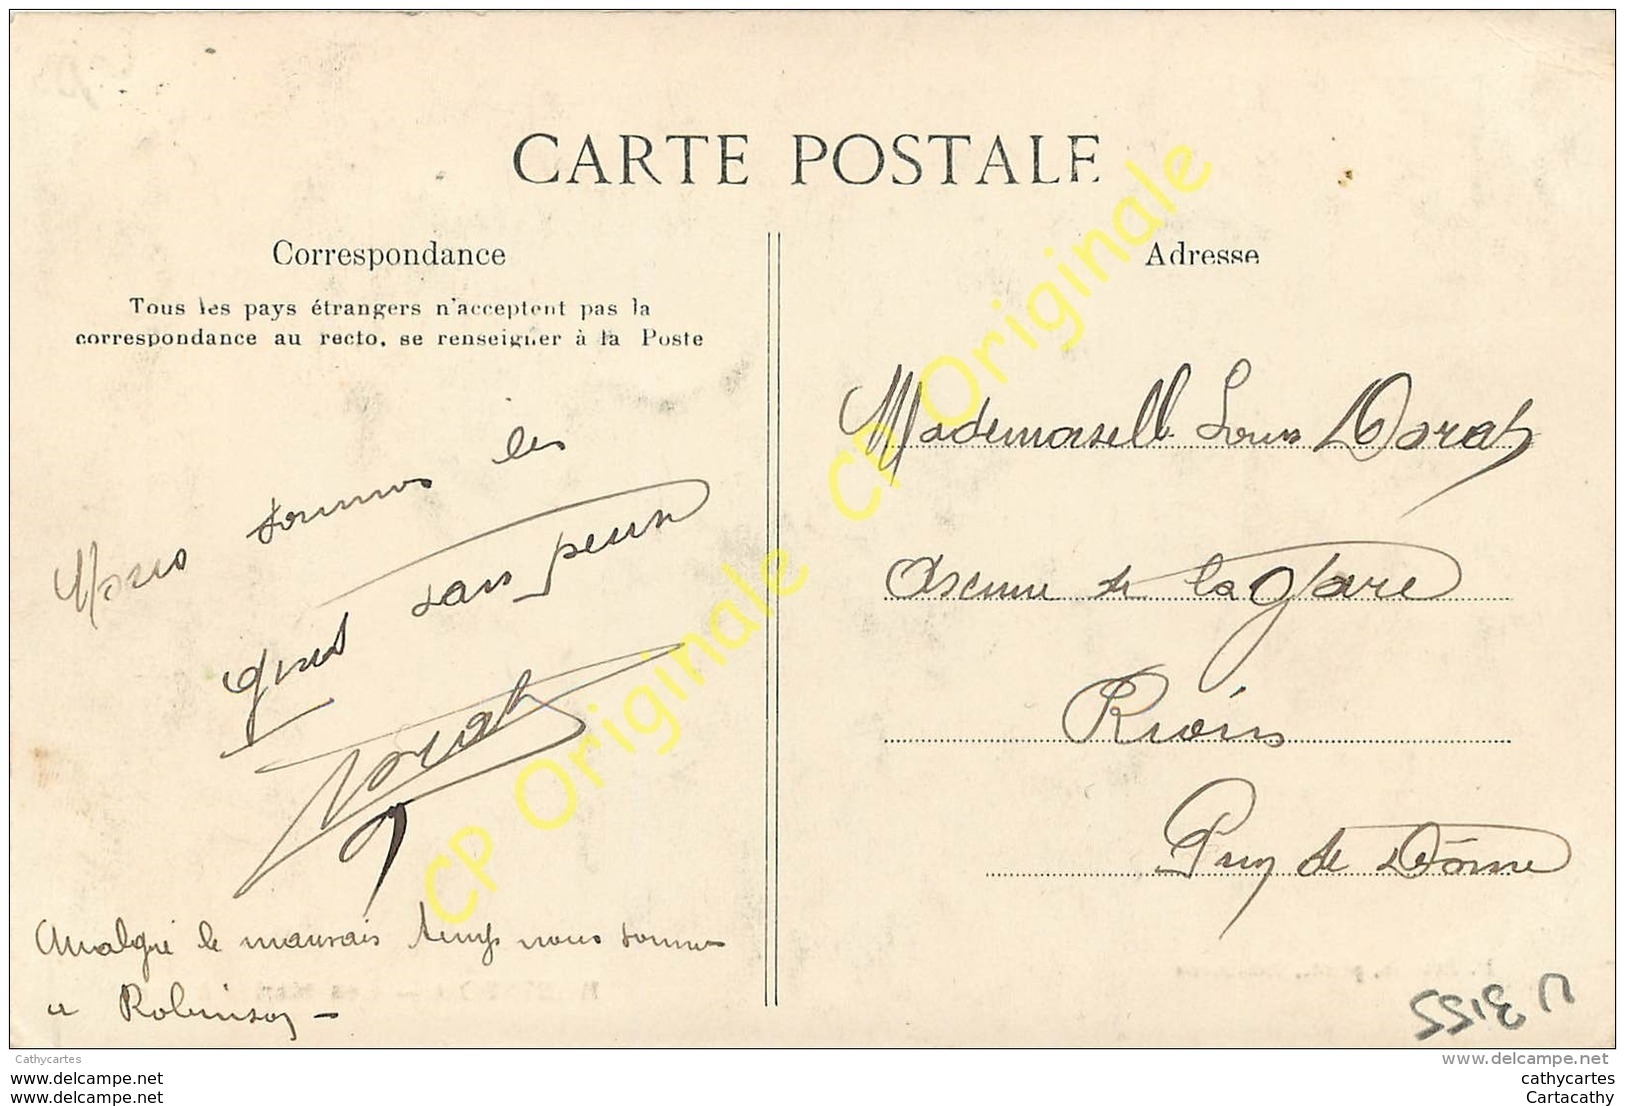 CARTE POSTALE
Correspondance
Tous les pays étrangers n'acceptent pas la
correspondance au recto, se renseigner à la Poste
Nous sommes les
gens sans peur
Malgré le mauvais temps nous sommes
a Robinson –
Adresse
Mademoiselle Louise
Avenue de la Gare
Riom
Puy de Dôme
CP Originale CP Originale
Cathycartes
www.delcampe.net
www.delcampe.net
www.delcampe.net
cathycartes
Cartacathy